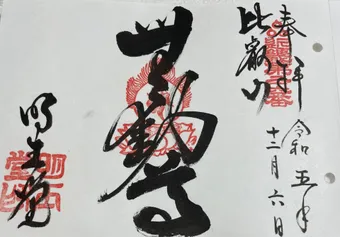 奉拝
令和五年
十二月六日
比叡山
無動尊
明王堂